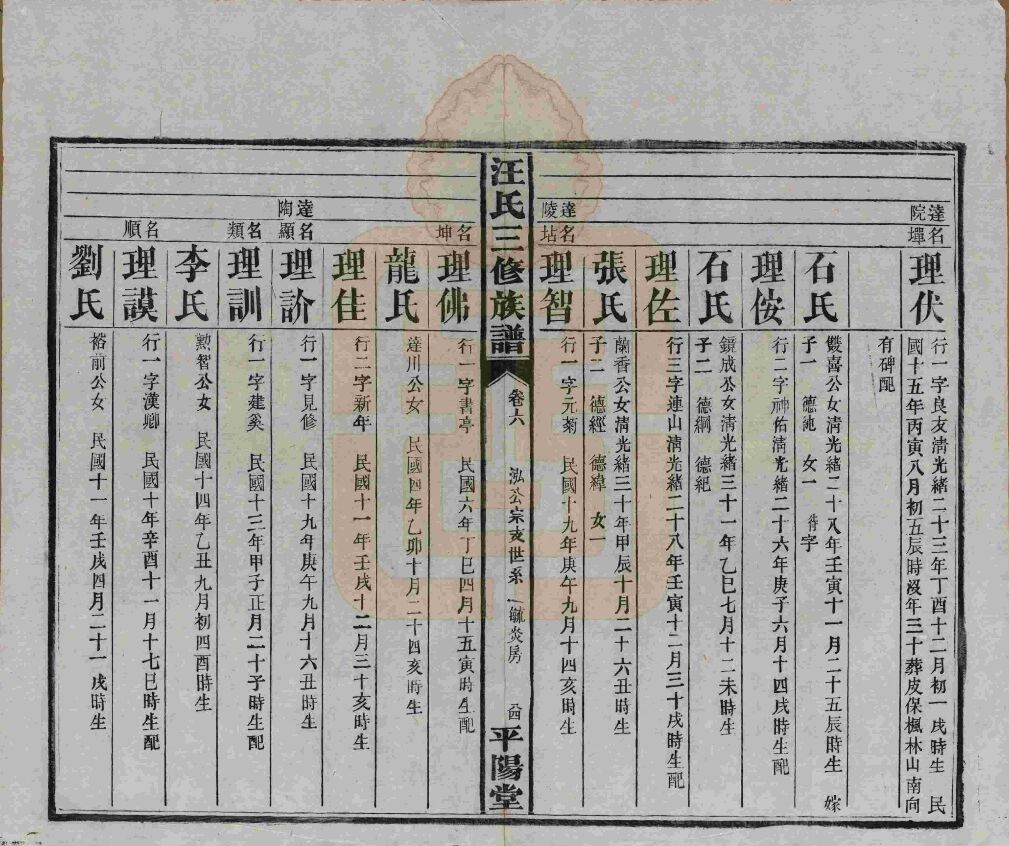 達院
名墠
理伏
行一字良友淸光緒二十三年丁酉十二月初一戌時生 民
國十五年丙寅八月初五辰時沒年三十葬皮保楓林山南向
有碑配
石氏
雙喜公女淸光緒二十八年壬寅十一月二十五辰時生 嫁
子一 德純 女一 待字
理侒
行二字神佑淸光緒二十六年庚子六月十四戌時生配
石氏
鏡成公女淸光緒三十一年乙巳七月十二未時生
子二 德綱 德紀
理佐
行三字連山淸光緒二十八年壬寅十二月三十戌時生配
張氏
蘭香公女淸光緒三十年甲辰十月二十六丑時生
子二 德經 德緯 女一
達陵
名坫
理智
行一字元菊 民國十九年庚午九月十四亥時生
汪氏三修族譜
卷六
泓公宗支世系
毓炎房
平陽堂
名坤
理佛
行一字書亭 民國六年丁巳四月十五寅時生配
龍氏
達川公女 民國四年乙卯十月二十四亥時生
理佳
行二字新年 民國十一年壬戌十二月三十亥時生
達陶
名顯
理訡
行一字見修 民國十九年庚午九月十六丑時生
名類
理訓
行一字建奚 民國十三年甲子正月二十子時生配
李氏
勲智公女 民國十四年乙丑九月初四酉時生
名順
理謨
行一字漢卿 民國十年辛酉十一月十七巳時生配
劉氏
裕前公女 民國十一年壬戌四月二十一戌時生